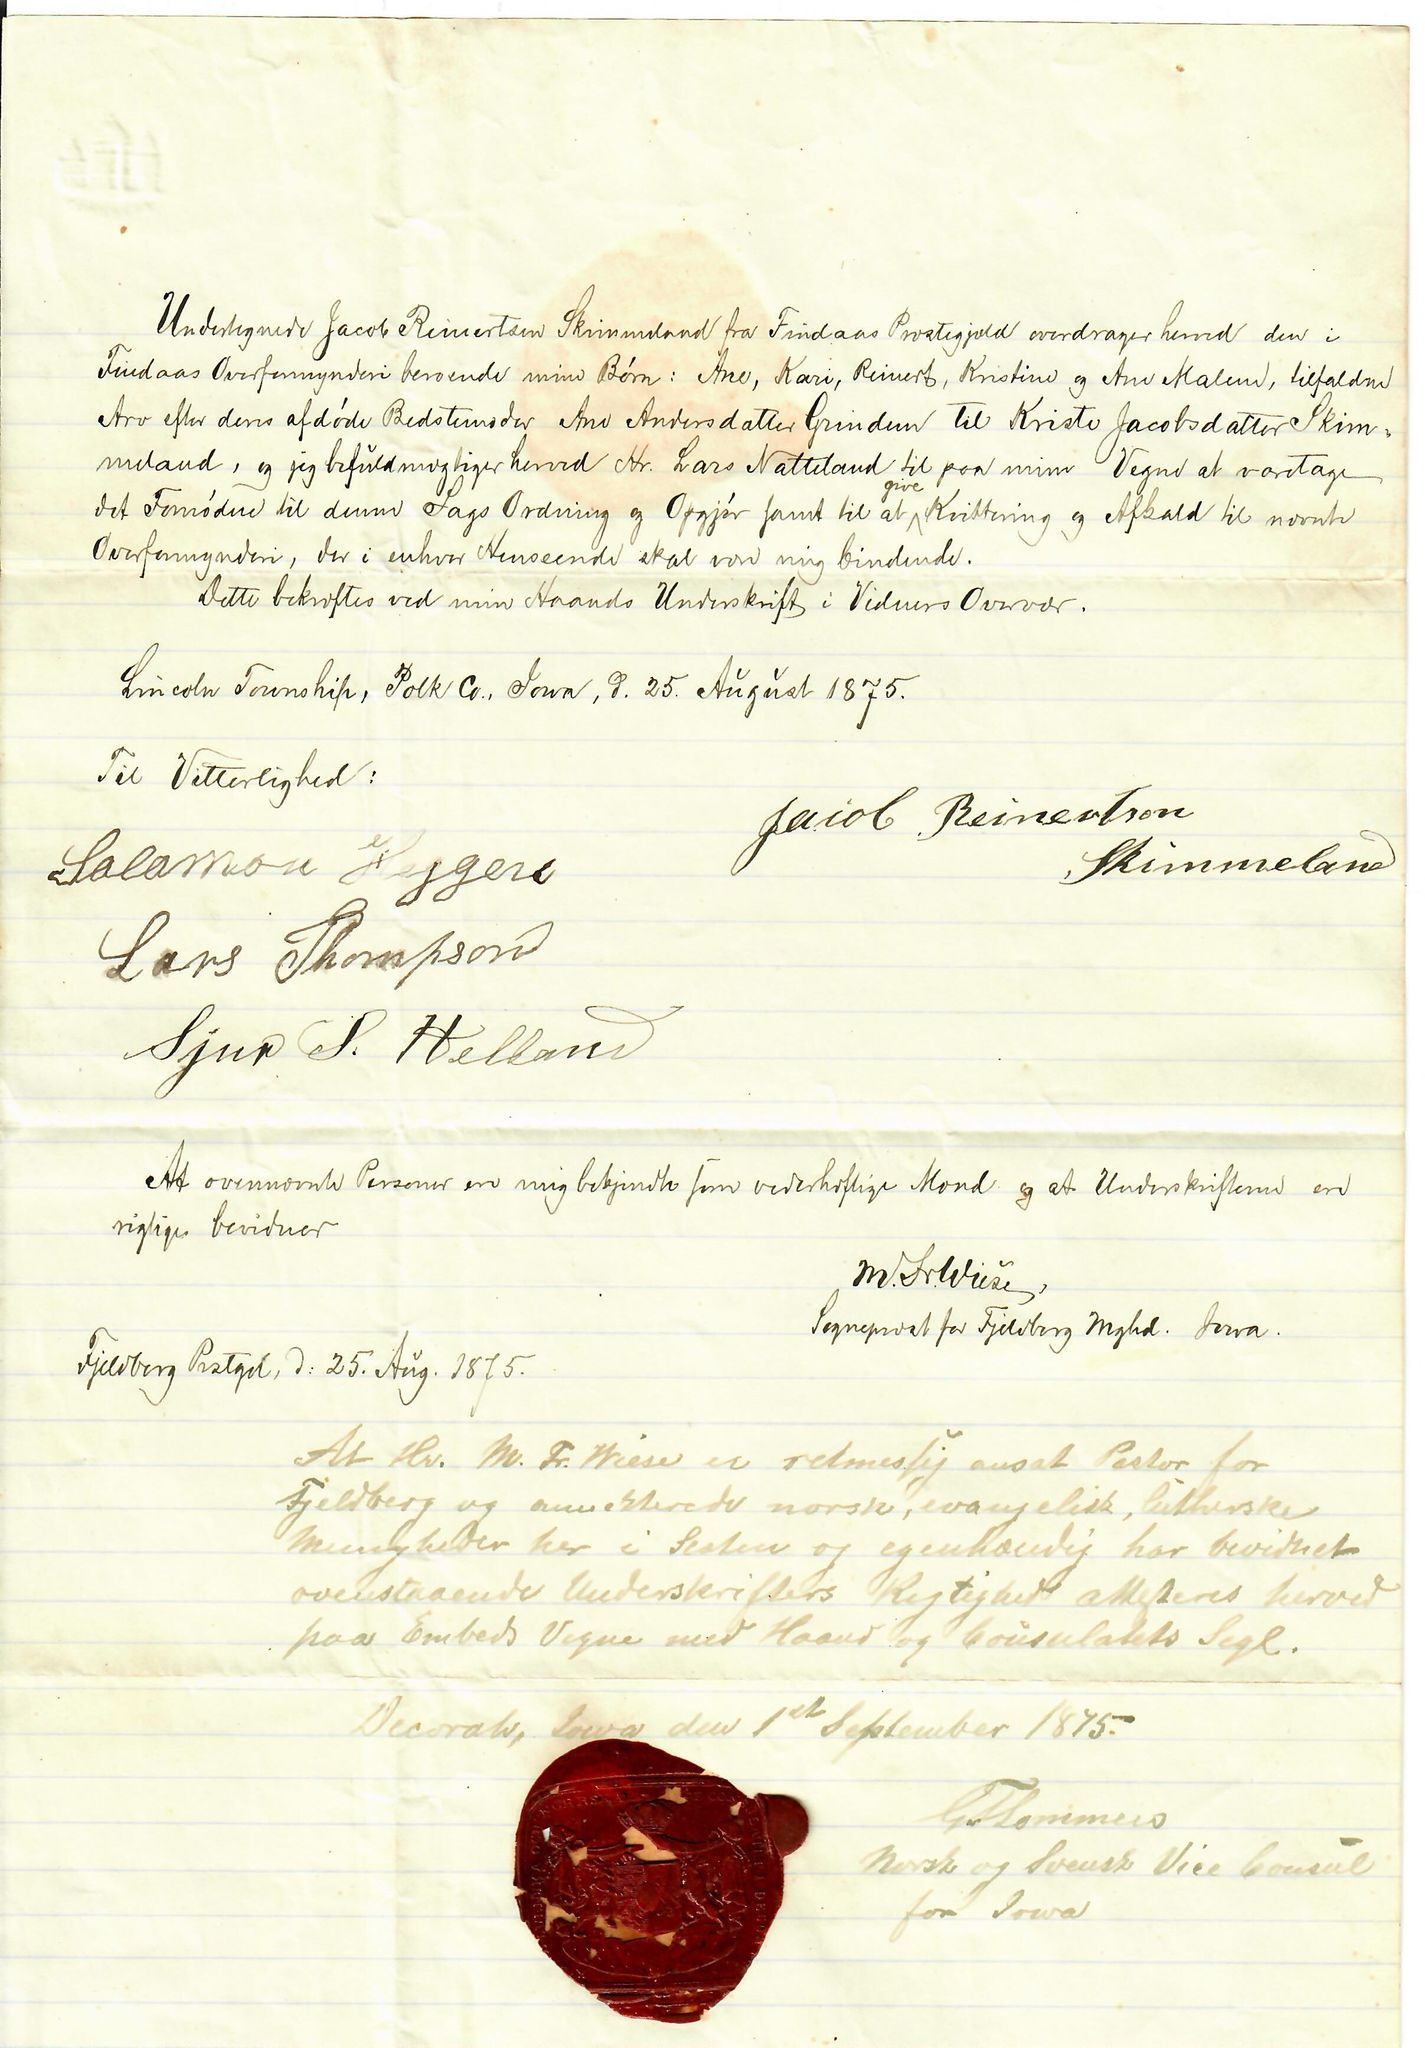 Undertegnede Jacob Reinertsen Skimmeland fra Findaas Præstegjæld overdrager herved den i
Findaas Overformynderi beroende mine Børn: Ane, Kari, Reinert, Kristine og Ane Malene, tilfaldne
Arv efter deres afdøde Bedstemoder Ane Andersdatter Grindem til Kriste Jacobsdatter Skim-
meland, og jeg befuldmægtiger herved Hr. Lars Natteland til paa mine Vegne at varetage
det Fornødne til denne Sags Ordning og Opgjør samt til at give Kvittering og Afkald til nævnte
Overformynderi, der i enhver Henseende skal være mig bindende.
Dette bekræftes ved min Haands Underskrift i Vidners Overvær.
Lincoln Township, Polk Co., Iowa, d. 25. August 1875.
Til Vitterlighed:
Jacob Reinertson
Skimmeland
Salamon Heggen
Lars Thompson
Sjur S. Helland
At ovennævnte Personer ere mig bekjendte som vederhæftige Mænd og at Underskrifterne ere
rigtige bevidner
M. Fr. Wiese,
Sogneprest for Fjeldberg Mghd. Iowa.
Fjeldberg Prstgd, d: 25. Aug. 1875.
At Hr. M. Fr. Wiese er retmessig ansat Pastor for
Fjeldberg og annekterede norsk, evangelisk, lutherske
Menigheder her i Staten og egenhændig har bevidnet
ovenstaaende Underskrifters Rigtighed attesteres herved
paa Embeds Vegne med Haand og Consulatets Segl.
Decorah, Iowa den 1st September 1875.
Norsk og Svensk Vice Consul
for Iowa